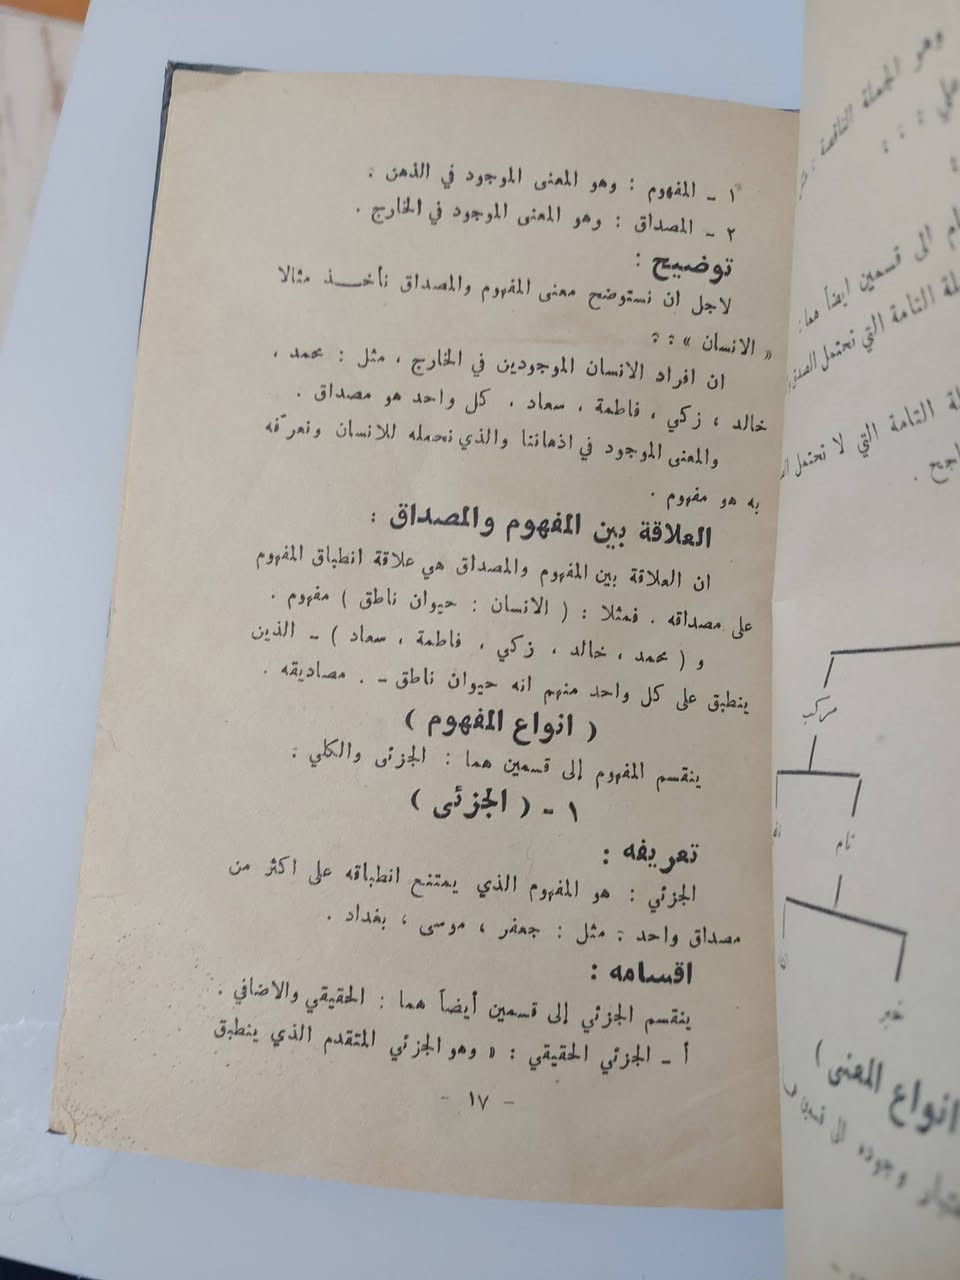 ١ - المفهوم : وهو المعنى الموجود في الذهن .
٢ - المصداق : وهو المعنى الموجود في الخارج .
توضيح :
لاجل ان نستوضح معنى المفهوم والمصداق نأخــذ مثالا
« الانسان » : :
ان افراد الانسان الموجودين في الخارج ، مثل : محمد ،
خالد ، زكي ، فاطمة ، سعاد . كل واحد هو مصداق .
والمعنى الموجود في اذهاننا والذي نحمله للانسان ونعرّفه
به هو مفهوم .
العلاقة بين المفهوم والمصداق :
ان العلاقة بين المفهوم والمصداق هي علاقة انطباق المفهوم
على مصداقه . فمثلا : ( الانسان : حيوان ناطق ) مفهوم .
و ( محمد ، خالد ، زكي ، فاطمة ، سعاد ) - الذين
ينطبق على كل واحد منهم انه حيوان ناطق - . مصاديقه .
( انواع المفهوم )
ينقسم المفهوم إلى قسمين هما : الجزئى والكلي :
١ - ( الجزئى )
تعريفه :
الجزئي : هو المفهوم الذي يمتنع انطباقه على اكثر من
مصداق واحد : مثل : جعفر ، موسى ، بغداد .
اقسامه :
ينقسم الجزئي إلى قسمين أيضاً هما : الحقيقي والاضافي .
أ - الجزئي الحقيقي : « وهو الجزئي المتقدم الذي ينطبق
- ١٧ -
وهو الجملة الناقصة
ام الى قسمين ايضاً هما :
لة التامة التي تحتمل الصدق
لة التامة التي لا تحتمل
مركب
تام
خبر
انواع المعنى )
وجوده الى قسمين